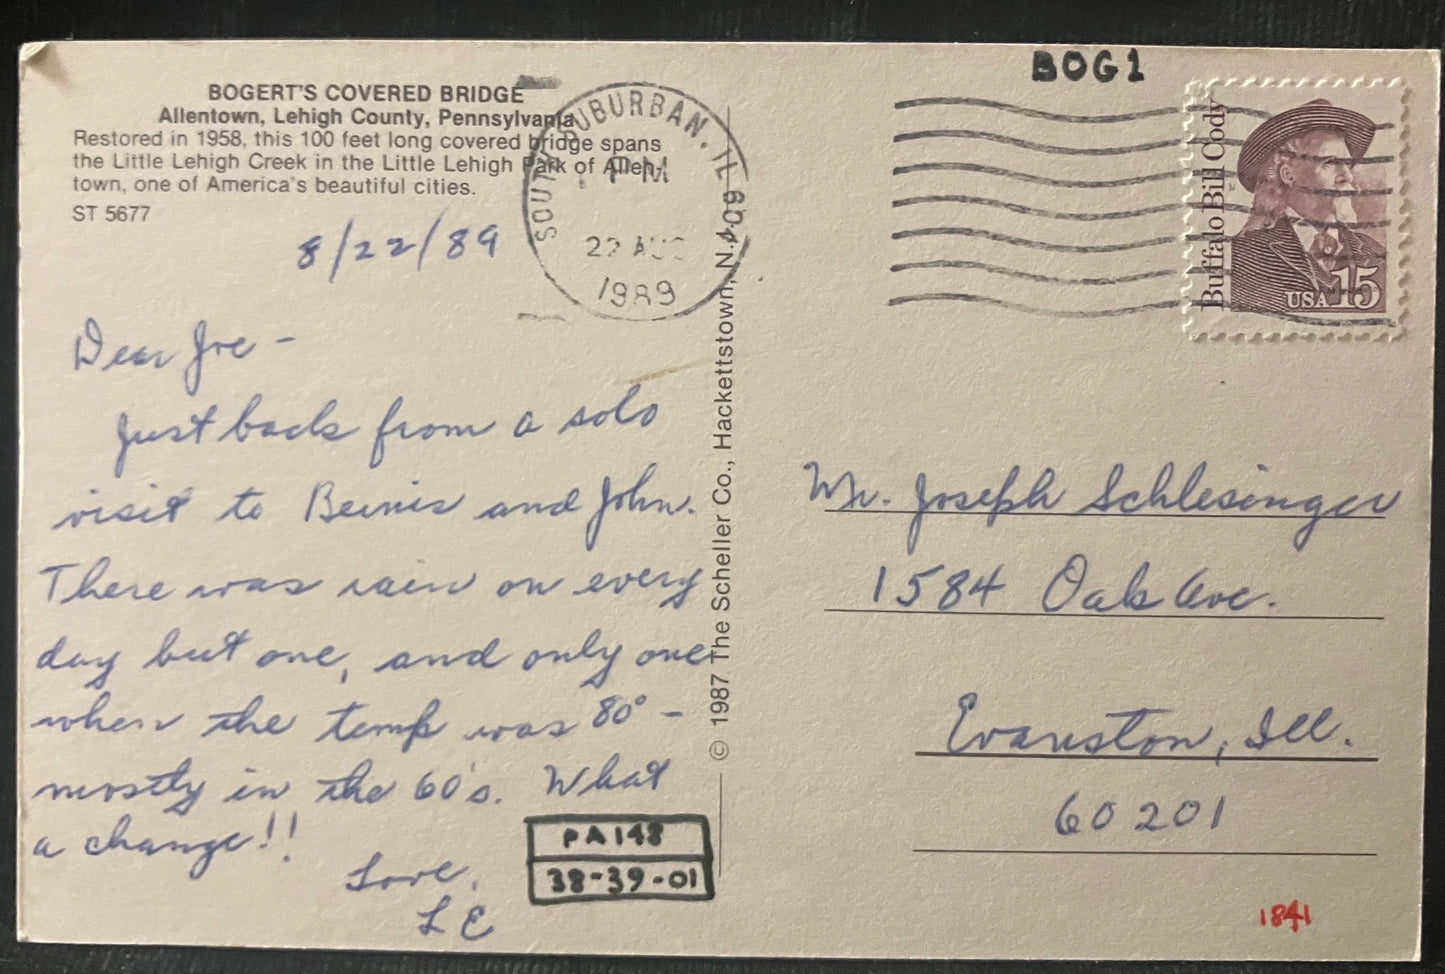 BOG1
BOGERT'S COVERED BRIDGE
Allentown, Lehigh County, Pennsylvania
Restored in 1958, this 100 feet long covered bridge spans
the Little Lehigh Creek in the Little Lehigh Park of Allen-
town, one of America's beautiful cities.
ST 5677
SOUTH SUBURBAN, IL 604
PM
22 AUG
1989
Buffalo Bill Cody
USA 15
8/22/89
Dear Joe -
Just back from a solo
visit to Bernis and John.
There was rain on every
day but one, and only one
when the temp was 80° -
mostly in the 60's. What
a change!!
Love,
LE
© 1987 The Scheller Co., Hackettstown, N.J.
Mr. Joseph Schlesinger
1584 Oak Ave.
Evanston, Ill.
60201
PA148
38-39-01
1841